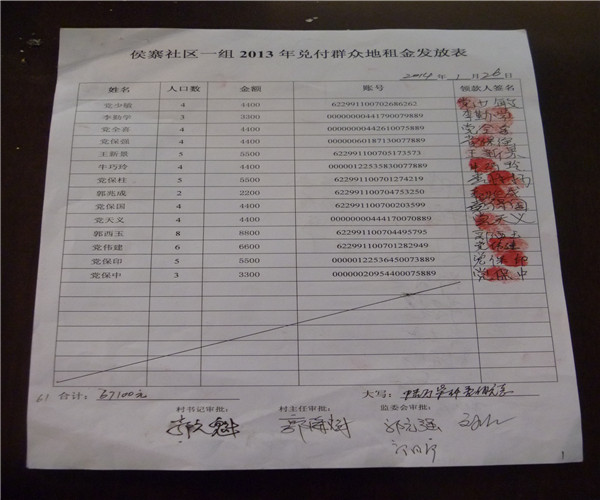 侯寨社区一组 2013 年兑付群众地租金发放表
2014 年 1 月 26 日
姓名 人口数 金额 账号 领款人签名
党少敏 4 4400 622991100702686262 党少敏
李勤学 3 3300 00000000441790079889 李勤学
党全喜 4 4400 00000000442610075889 党全喜
党保强 4 4400 00000060187130077889 党保强
王新景 5 5500 622991100705173573 王新景
牛巧玲 4 4400 00000122535830077889 牛巧玲
党保柱 5 5500 622991100701274219
郭兆成 2 2200 622991100704753250
党保国 4 4400 622991100700203599 党保国
党天义 4 4400 00000000444170070889 党天义
郭西玉 8 8800 622991100704495795 郭西玉
党伟建 6 6600 622991100701282949 党伟建
党保印 5 5500 00000122536450073889 党保印
党保中 3 3300 00000020954400075889 党保中
61 合计: 67100元 大写:
村书记审批: 村主任审批: 监委会审批:
1